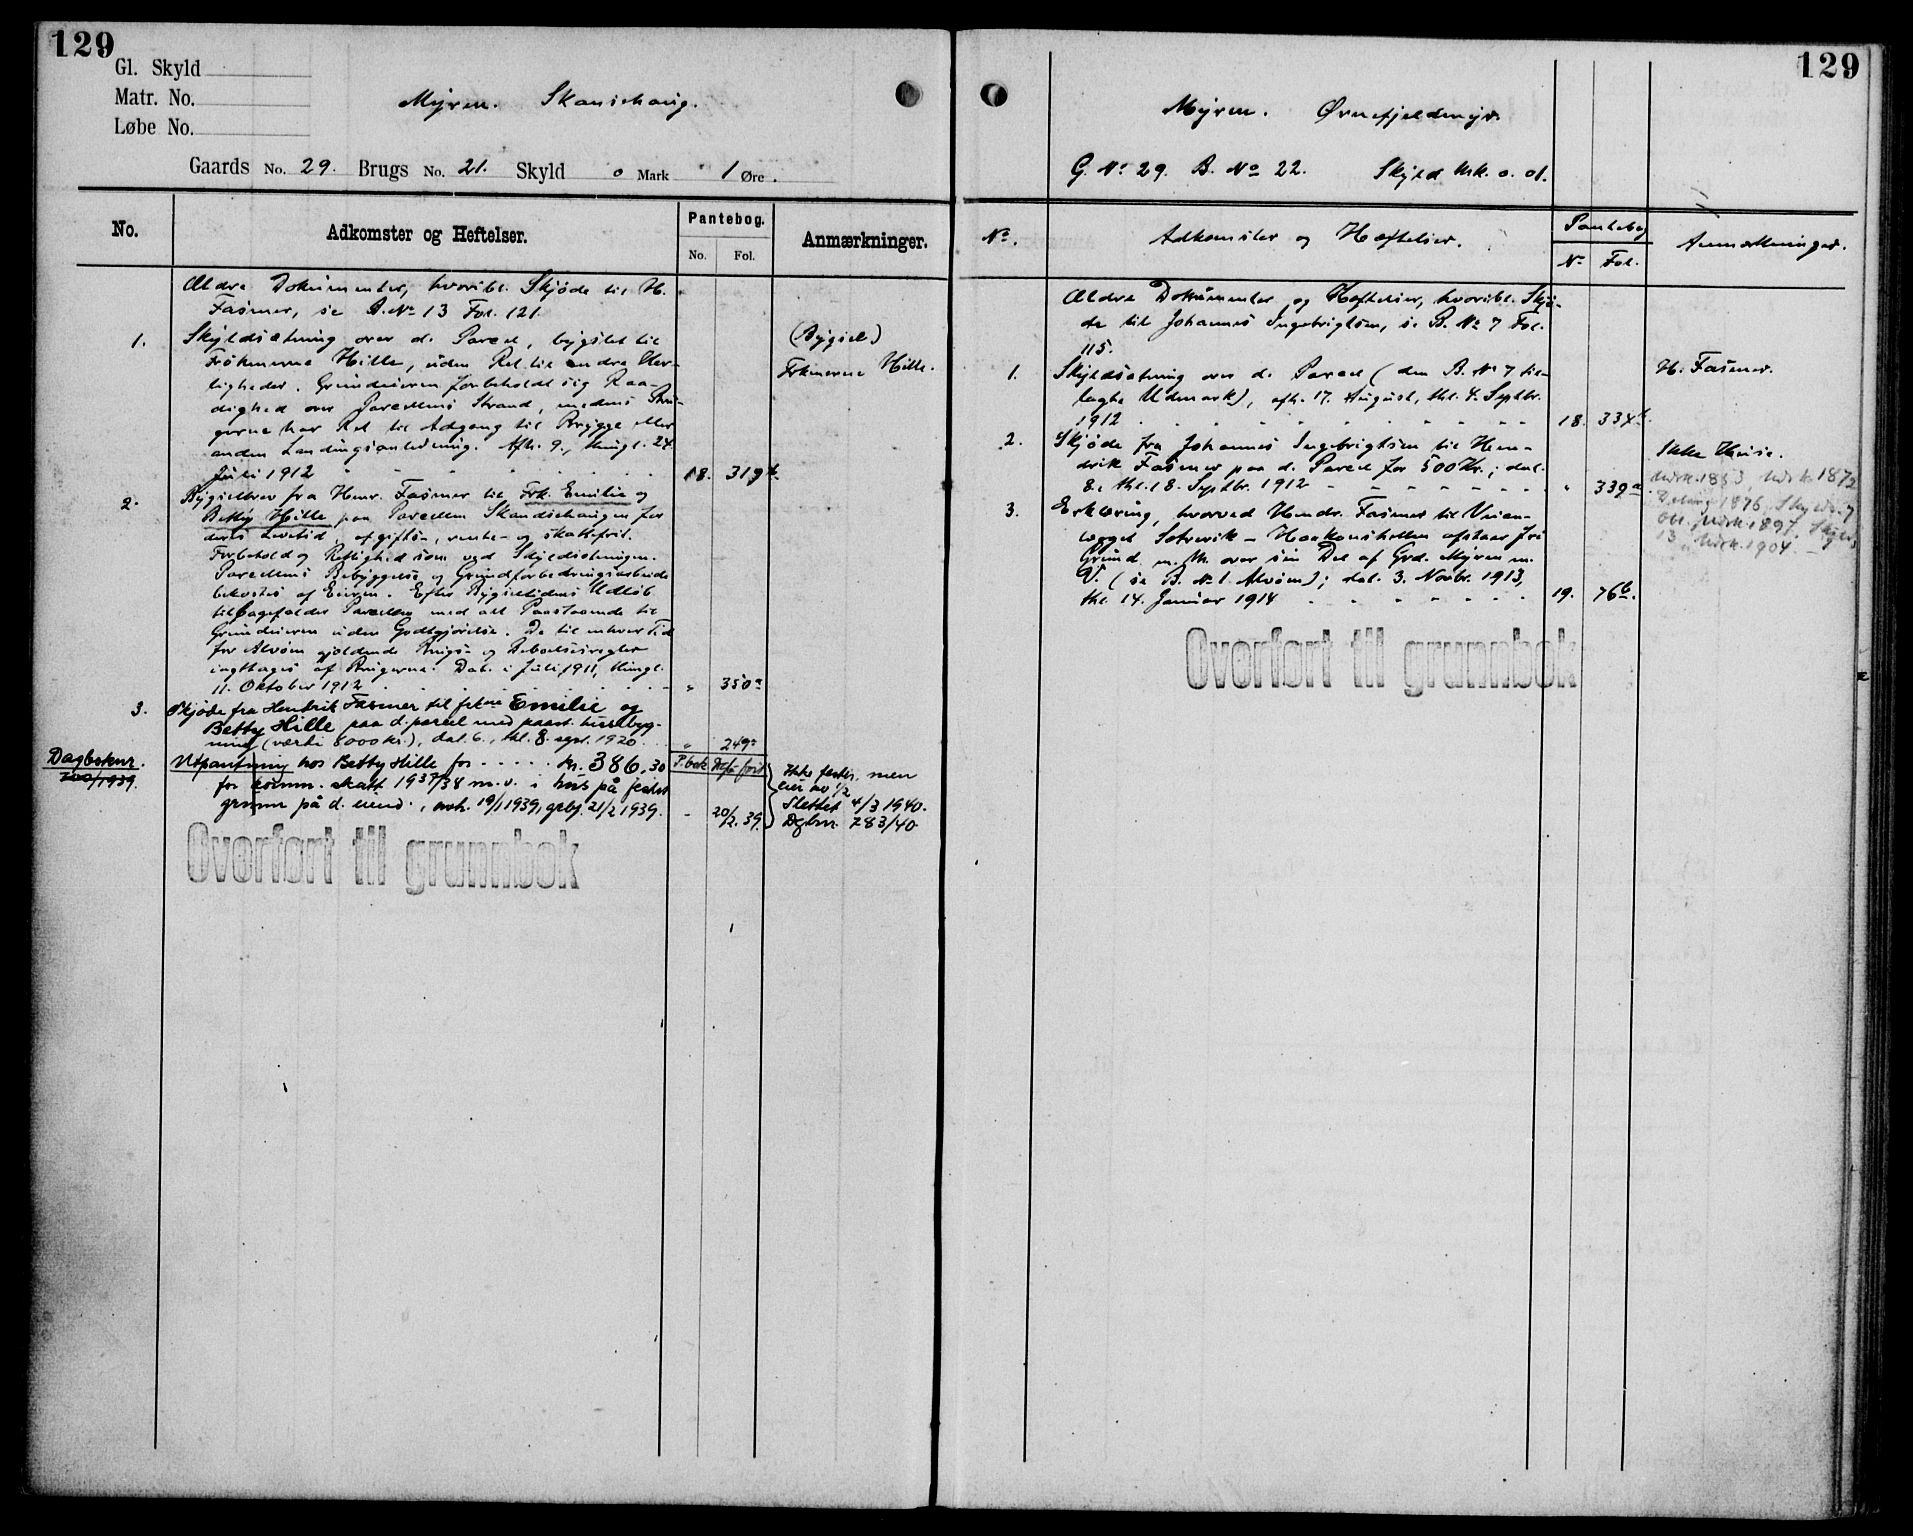 129
Gl. Skyld
Matr. No.
Løbe No.
Myren. Skansehaug.
Gaards No. 29. Brugs No. 21. Skyld 0 Mark 1 Øre.
No. Adkomster og Heftelser. Pantebog. Anmærkninger.
No. Fol.
Ældre Dokumenter, hvoribl. Skjøde til H.
Fasmer, se B. No 13 Fol. 121.
1. Skyldsætning over d. Parcel, bygslet til (Bygsel)
Frøknerne Hille, uden Ret til andre Her- Frknerne Hille.
ligheder. Grundeieren forbeholdt sig Raa-
dighed over Parcellens Strand, medens Bru-
gerne har Ret til Adgang til Brygge eller
anden Landingsanledning. Afh. 9., thingl. 24.
Juli 1912 18. 319b.
2. Bygselbrev fra Henr. Fasmer til Frk. Emilie og
Betty Hille paa Parcellen Skandsehaugen for
deres Levetid, afgifts-, rente- og skattefrit.
Forbehold og Rettighed som ved Skyldsetningen.
Parcellens Bebyggelse og Grundforbedringsarbeide
bekostes af Eieren. Efter Bygseltidens Udløb
tilbagefalder Parcellen med alt Paastaaende til
Grundeieren uden Godtgjørelse. De til enhver Tid
for Alvøen gjeldende Brugs- og Beboelsesregler
iagttages af Brugerne. Dat. i Juli 1911, thingl.
11. Oktober 1912 " 350a
3. Skjøde fra Hendrik Fasmer til frkne Emilie og
Betty Hille paa d. parcel med paast. husebyg-
ning (værdi 8000 kr.), dat. 6., thl. 8. sept. 1920. " 249a
Dagboknr.
200/1939.
Utpantning hos Betty Hille for kr. 386,30 P.bok
for komm. skatt 1937/38 m.v. i hus på festet
grunn på d. eiend., avh. 19/1 1939, grbj. 21/2 1939. - 20/2.39.
Ikke fester, men
eier av 1/2
Slettet 4/3 1940.
Dgbnr. 783/40.
Overført til grunnbok
129
Myren. Ørnefjeldmyr.
G. No 29. B. No 22. Skyld Mk. 0. 01.
No. Adkomster og Heftelser. Pantebog Anmerkninger.
No Fol.
Ældre Dokumenter og Heftelser, hvoribl. Skjø-
de til Johannes Ingebrigtsen, se B. No 7 Fol.
115.
1. Skyldsætning over d. Parcel (den B. No 7 til- H. Fasmer.
lagte Udmark), afh. 17. August, thl. 4. Septbr.
1912 18. 334b.
2. Skjøde fra Johannes Ingebrigtsen til Hen- Ikke Huse.
drik Fasmer paa d. Parcel for 500 Kr.; dat.
8., thl. 18. Septbr. 1912 " 339a.
3. Erklæring, hvorved Hendr. Fasmer til Veian-
lægget Søtrevik - Haakonshellen afstaar fri
Grund m. M. over sin Del af Grd. Myren m.
V. (se B. No 1. Alvøen); dat. 3. Novbr. 1913,
thl. 14. Januar 1914 19. 76b.
Overført til grunnbok